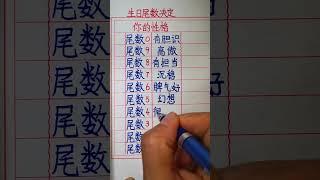 生日尾数决定
你的性格
尾数0 有胆识
尾数9 高傲
尾数8 有担当
尾数7 沉稳
尾数6 脾气好
尾数5 幻想
尾数4
尾数3
尾数
尾数